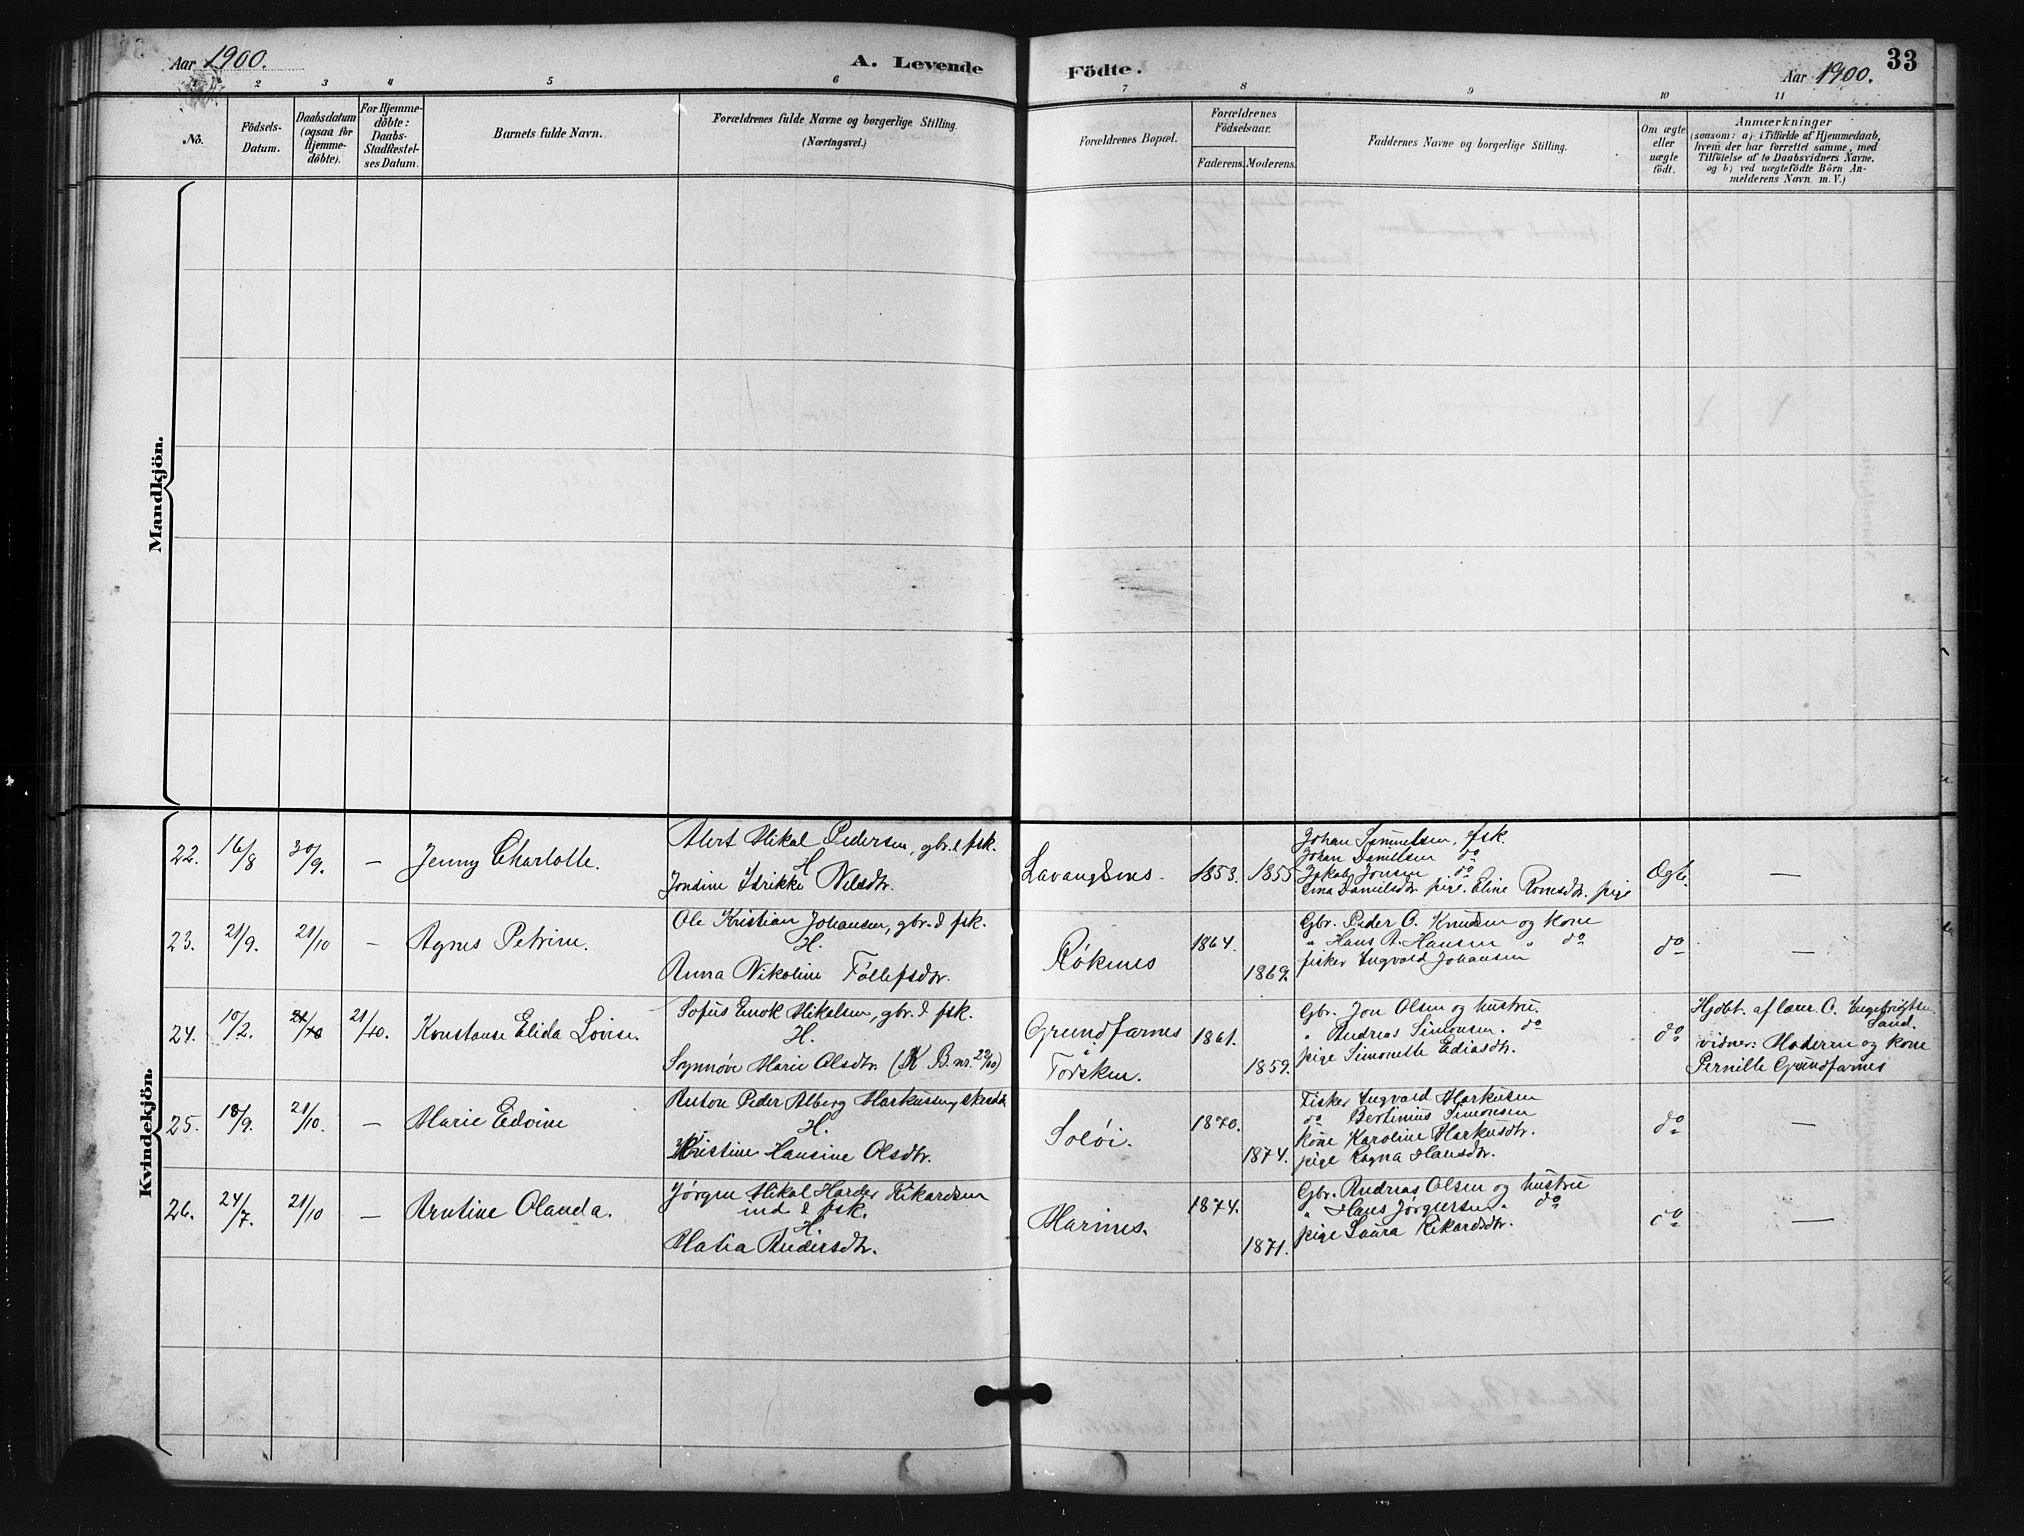 Aar 1900.
A. Levende
Födte.
Aar 1900.
33
2 3 4 5 6 7 8 9 10 11
No.
Födsels-
Datum.
Daabsdatum
(ogsaa for
Hjemme-
döbte).
For Hjemme-
döbte:
Daabs-
Stadfæstel-
ses Datum.
Barnets fulde Navn.
Forældrenes fulde Navne og borgerlige Stilling.
(Næringsvei.)
Forældrenes Bopæl.
Forældrenes
Födselsaar.
Faderens. Moderens.
Faddernes Navne og borgerlige Stilling.
Om ægte
eller
uægte
födt.
Anmærkninger
(saasom: a) i Tilfælde af Hjemmedaab,
hvem der har forrettet samme, med
Tilföielse af to Daabsvidners Navne.
og b) ved uægtefödte Börn An-
melderens Navn m. V.)
Mandkjön.
Kvindekjön.
22. 16/8 30/9. — Jenny Charlotte.
Mikal Pedersen, gbr. & fsk.
H
Jondine Idrikke Nilsdtr.
Lavangsnes. 1853. 1855
Johan Samuelsen, fsk.
Johan Danielsen do
Jakob Jonsen do
Lina Danielsdtr pige. Eline pige
Ægte. —
23. 21/9. 21/10 — Agnes Petrine.
Ole Kristian Johansen, gbr. & fsk.
H.
Anna Nikoline Tollefsdtr.
Røknes 1864. 1869.
Gbr. Peder O. Knudsen og kone
" Hans A. Hansen " do
fisker Ingvald Johansen
do —
24. 10/2. 21/10 21/10. Konstanse Elida Lovise.
Sofus Enok Mikalsen, gbr. & fsk.
H.
Synnøve Marie Olsdtr. (K. B. nr. 29/00)
Grundfarnes
i
Torsken. 1861. 1859.
Gbr. Jon Olsen og hustru.
" Andreas Simonsen. do
pige Simonette Ediasdtr.
do
Hjdbt. af lærer O. Engebrigtsen
Sand.
vidner: Moderen og kone
Pernille Grundfarnes
25. 18/9. 21/10. — Marie Edvine
Anton Peder Alberg Markussen,
H.
Kristine Hansine Olsdtr.
Soløi. 1870. 1874.
Fisker Ingvald Markusen
do Bertinius Simonsen
kone Karoline Markusdtr.
pige Ragna Hansdtr.
do —
26. 24/7. 21/10 — Arntine Olanda.
Jørgen Mikal Harder Rikardsen
ind. & fsk.
H.
Maria Andersdtr.
Marines. 1874. 1871.
Gbr. Andreas Olsen og hustru
" Hans Jørgensen " do
pige Laura Rikardsdtr.
do —